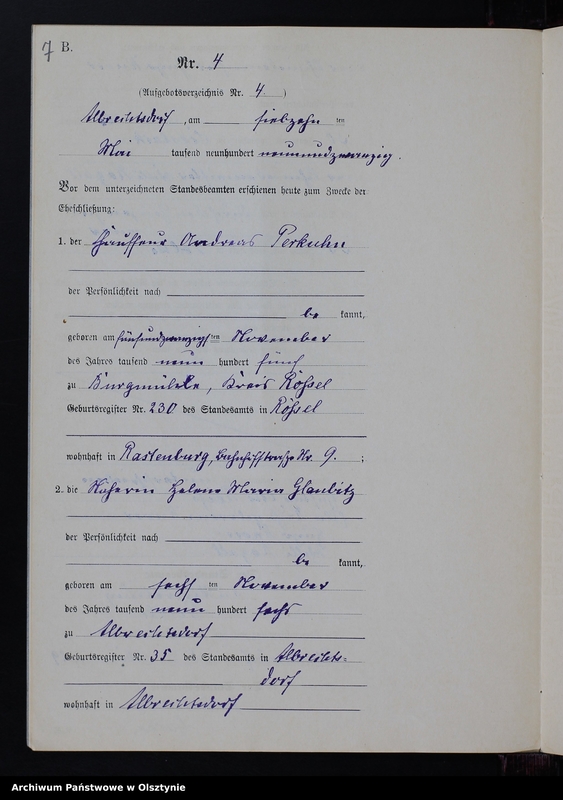 7 B.
Nr. 4
(Aufgebotsverzeichnis Nr. 4)
Albrechtsdorf, am siebzehn ten
Mai tausend neunhundert neunundzwanzig.
Vor dem unterzeichneten Standesbeamten erschienen heute zum Zwecke der
Eheschließung:
1. der Chauffeur Andreas Perkuhn
der Persönlichkeit nach
be kannt,
geboren am fünfundzwanzigsten November
des Jahres tausend neun hundert fünf
zu Burgmühle, Kreis Rößel
Geburtsregister Nr. 230 des Standesamts in Rößel
wohnhaft in Rastenburg, Bahnhofstraße Nr. 9. ;
2. die Näherin Helene Maria Glaubitz
der Persönlichkeit nach
be kannt,
geboren am sechs ten November
des Jahres tausend neun hundert sechs
zu Albrechtsdorf
Geburtsregister Nr. 35 des Standesamts in Albrechts-
dorf
wohnhaft in Albrechtsdorf
Archiwum Państwowe w Olsztynie